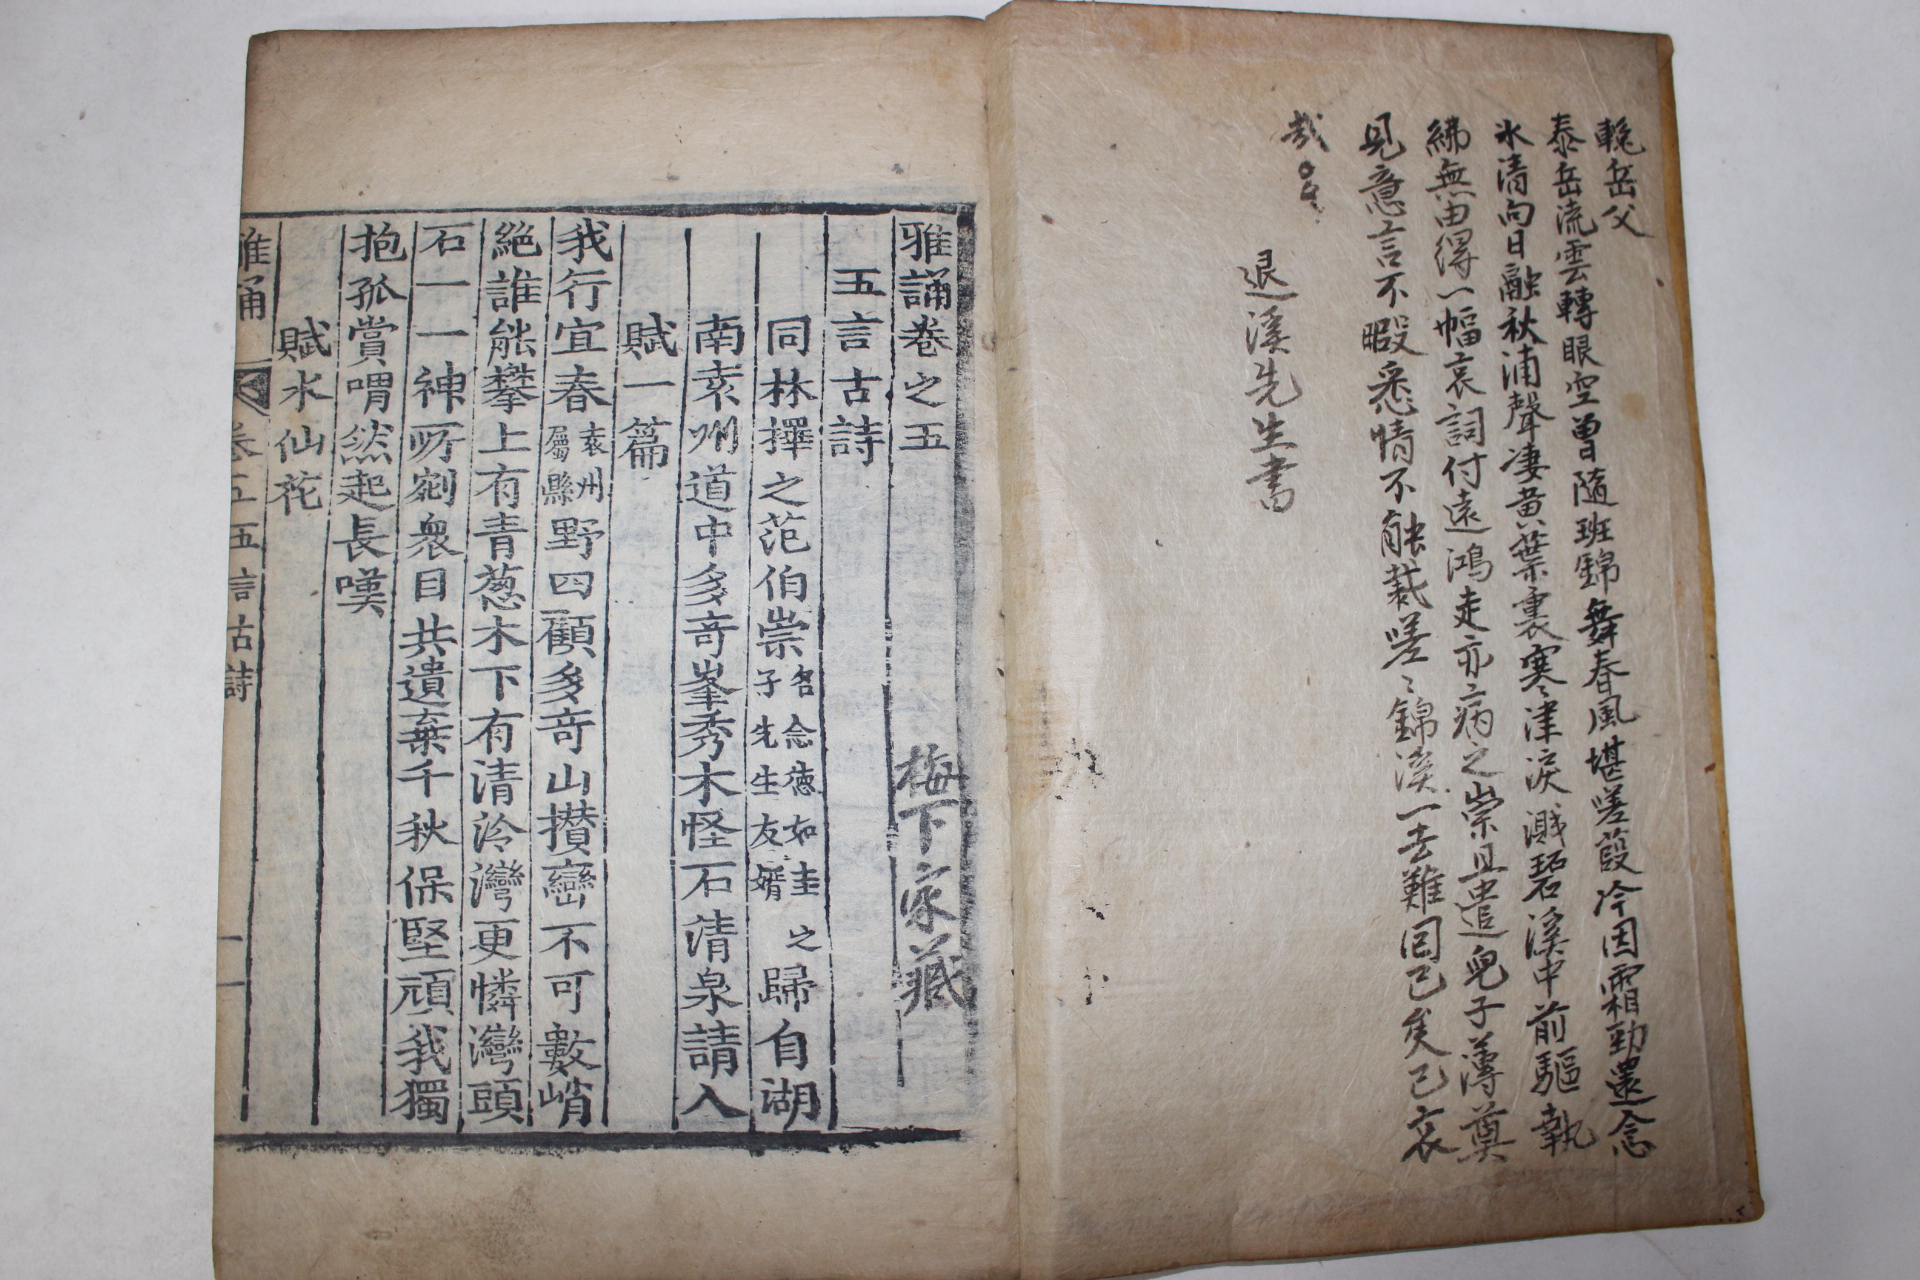 輓岳父
泰岳流雲轉眼空曾隨班錦舞春風堪嗟葭冷因霜勁還念
氷清向日融秋浦聲凄黃葉裏寒津淚濺碧溪中前驅執
紼無由得一幅哀詞付遠鴻走亦病之祟且遣兒子薄奠
見意言不暇悉情不能裁嗟〻錦溪一去難回已矣已哀
哉
退溪先生書
雅誦卷之五
梅下家藏
五言古詩
同林擇之范伯崇名念德如圭之子先生友婿歸自湖
南袁州道中多奇峯秀木怪石清泉請人
賦一篇
我行宜春袁州屬縣野四顧多奇山攢巒不可數峭
絕誰能攀上有青葱木下有清泠灣更憐灣頭
石一一神所剜衆目共遺棄千秋保堅頑我獨
抱孤賞喟然起長嘆
賦水仙花
雅誦 卷五 五言古詩 一